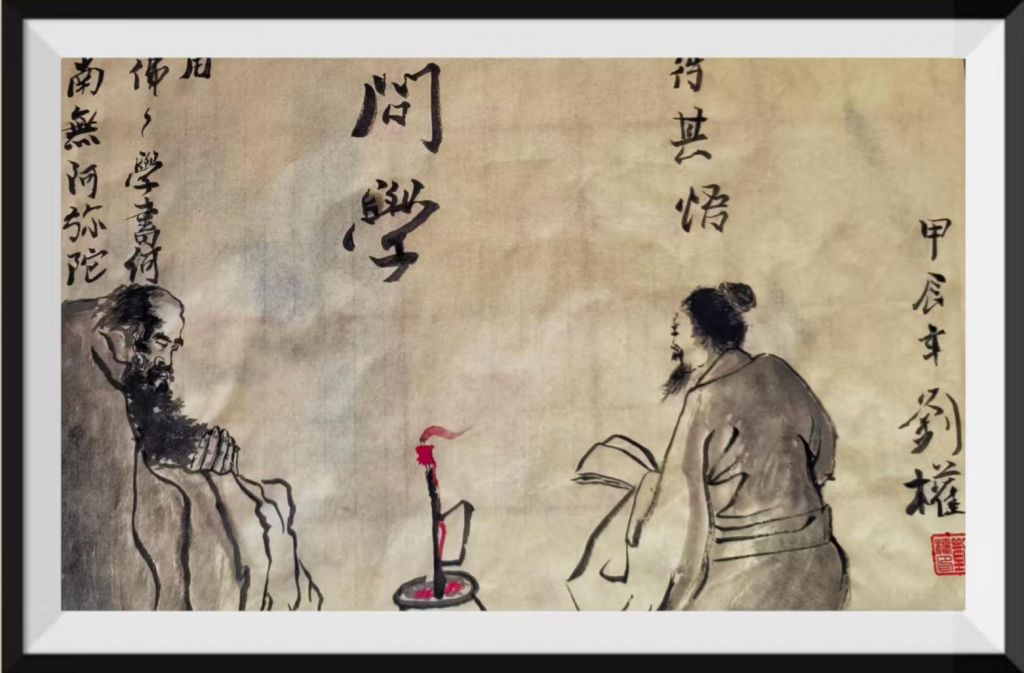 甲辰年劉權
其悟
問學
用
佛〻學書何
南無阿弥陀